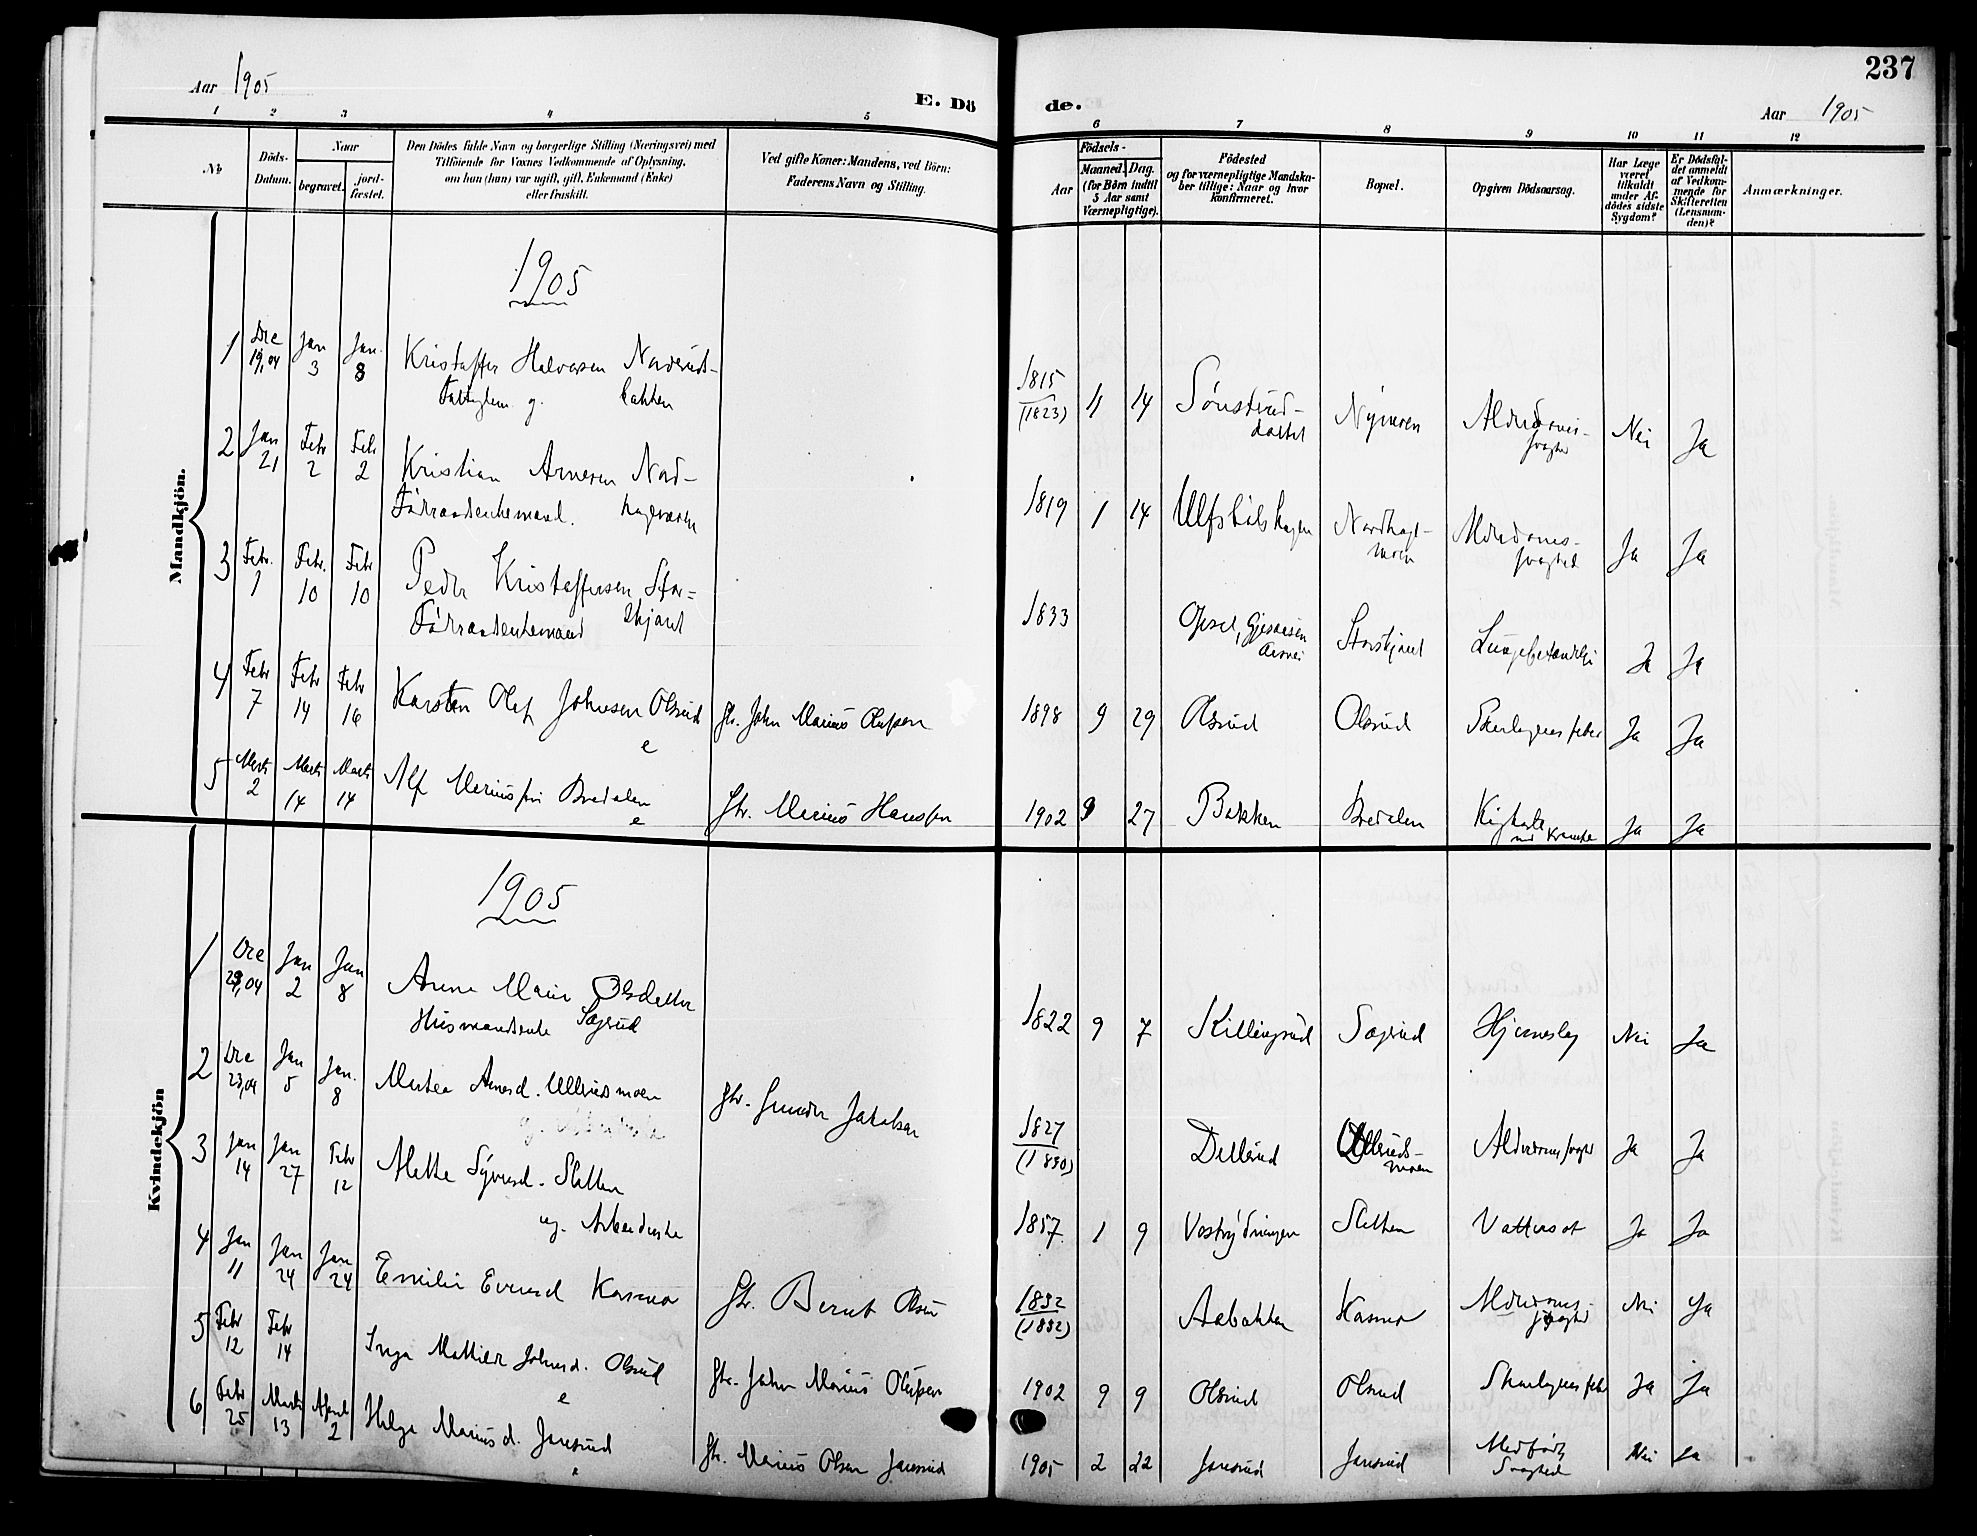 237
Aar 1905
E. Dö
de.
Aar 1905
1 2 3 4 5 6 7 8 9 10 11 12
No
Döds-
Datum.
Naar
begravet.
jord-
fæstet.
Den Dödes fulde Navn og borgerlige Stilling (Næringsvei) med
Tilföiende for Voxnes Vedkommende af Oplysning,
om han (hun) var ugift, gift, Enkemand (Enke)
eller fraskilt.
Ved gifte Koner: Mandens, ved Börn:
Faderens Navn og Stilling.
Aar
Födsels-
Maaned. Dag.
(for Börn indtil
5 Aar samt
Værnepligtige).
Födested
og for værnepligtige Mandska-
ber tillige: Naar og hvor
konfirmeret.
Bopæl.
Opgiven Dödsaarsag.
Har Læge
været
tilkaldt
under Af-
dödes sidste
Sygdom?
Er Dödsfal-
det anmeldt
af Vedkom-
mende for
Skifteretten
(Lensman-
den)?
Anmærkninger.
Mandkjön.
1905
1 Dec 19,04 Jan 3 Jan. 8 Kristoffer Halvorsen Nordrud-
bakken
1815
(1823) 11 14 Nei Ja
2 Jan 21 Febr 2 Febr 2 Kristian Arnesen Nord-
Föderaadsenkemand.
1819 1 14 Ulfsbölshagen Nordhags-
moen Alderdoms-
svaghed Ja Ja
3 Febr. 1 Febr. 10 Febr 10 Peder Kristoffersen Stor-
Föderaadsenkemand
1833 Storskjæret Lungebetændelse Ja Ja
4 Febr 7 Febr 14 Febr 16 Karsten Olaf Johnsen Olsrud
e
Gbr. John Marius Olufsen 1898 9 29 Olsrud Olsrud Skarlagensfeber Ja Ja
5 Marts 2 Marts 14 Marts 14 Alf Mariussen Bredalen
e
Gbr. Marius Hanssen 1902 9 27 Bakken Bredalen Kighoste
med Krampe Ja Ja
Kvindekjön
1905
1 Dec 29,04 Jan 2 Jan 8 Anne Marie Olsdatter
Husmandsenke Sagrud
1822 9 7 Killingrud Sagrud Hjerneslag Nei Ja
2 Dec 23,04 Jan 5 Jan. 8 Martea Arnesd. Ullerudsmoen
Gbr. Gunder Jakobsen
1827
(1830) Dellerud Ulleruds-
moen Ja Ja
3 Jan 14 Jan 27 Febr 12 Mette Syversd. Sletten
ug. Arbeiderske
1857 1 9 Sletten Vattersot Ja Ja
4 Jan 11 Jan 24 Jan 24 Emilie Evensd Kasmo
Gbr. Bernt Olsen
1832
(1832) Aabakken Kasmo Alderdoms-
svaghed Nei Ja
5 Febr 12 Febr 14 Inga Mathilde Johnsd. Olsrud
e
Gbr. John Marius Olufsen 1902 9 9 Olsrud Olsrud Skarlagensfeber Ja Ja
6 Febr 25 Marts 13 April 2 Helga Mariusd. Jansrud
e
Gbr. Marius Olsen Jansrud 1905 2 22 Jansrud Jansrud Medfödt
Svaghed Nei Ja